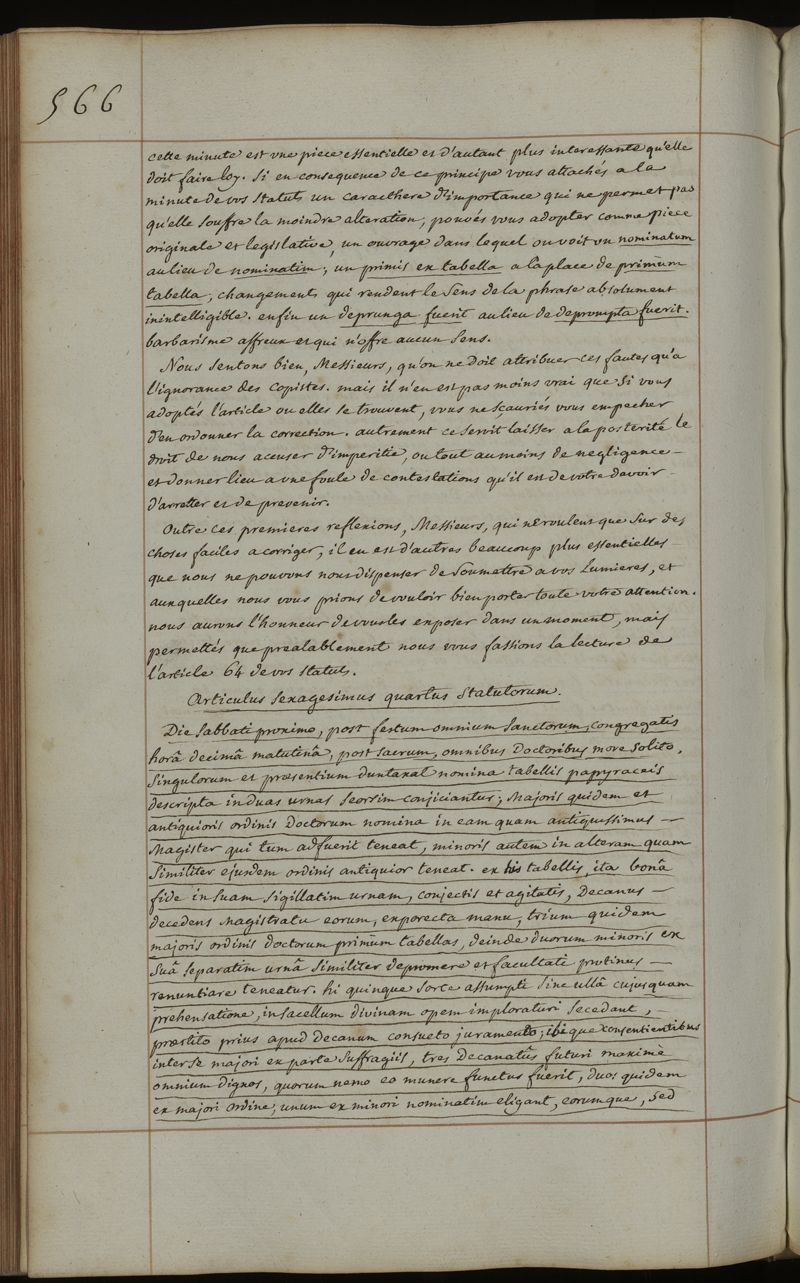 566
cette minute est une piece essentielle et d'autant plus interessante qu'elle
doit faire loy. Si en consequence de ce principe vous attachés a la
minute de vos statuts un caracthere d'importance qui ne permet pas
qu'elle souffre la moindre alteration, pouvés vous adopter comme piece
originale et legislative, un ouvrage dans lequel on voit un nominatum
au lieu de nominatim; un primis ex tabella a la place de primùm
tabella, changements qui rendent le sens de la phrase absolument
inintelligible. enfin un deprunga fuerit au lieu de deprompta fuerit.
barbarisme affreux et qui n'offre aucun sens.
Nous sentons bien, Messieurs, qu'on ne doit attribuer ces fautes qu'a
l'ignorance des copistes. mais il n'en est pas moins vrai que si vous
adoptés l'article ou elles se trouvent, vous ne sçauriés vous empecher
d'en ordonner la correction. autrement ce seroit laisser a la posterité le
droit de nous accuser d'imperitie, ou tout au moins de negligence –
et donner lieu a une foule de contestations qu'il est de votre devoir –
d'arretter et de prevenir.
Outre ces premieres reflexions, Messieurs, qui ne roulent que sur des
choses faciles a corriger, il en est d'autres beaucoup plus essentielles
que nous ne pouvons nous dispenser de soumettre a vos lumieres, et
auxquelles nous vous prions de vouloir bien porter toute votre attention.
nous aurons l'honneur de vous les exposer dans un moment, mais
permettés que prealablement nous vous fassions la lecture de
l'article 64 de vos statuts.
Articulus sexagesimus quartus Statutorum.
Die sabbati proximo, post festum omnium Sanctorum, congregatis
horâ decimâ matutinâ, post sacrum, omnibus Doctoribus more solito,
singulorum et præsentium duntaxat nomina tabellis papyraceis
descripta in duas urnas seorsim conjiciantur; Majoris quidem et
antiquioris ordinis Doctorum nomina in eam quam antiquissimus –
Magister qui tum adfuerit teneat, minoris autem in alteram quam
similiter ejusdem ordinis antiquior teneat. ex his tabellis, ita bonâ
fide in suam sigillatim urnam, conjectis et agitatis, Decanus –
decedens Magistratu eorum, exporecta manu, trium quidem
majoris ordinis doctorum primùm tabellas, deinde duorum minoris ex
suâ separatim urnâ similiter depromere et facultati protinus –
renuntiare teneatur. hi quinque sorte assumpti sine ullâ cujusquam
prehensatione, in sacellum divinam opem imploraturi secedant, –
præstito prius apud decanum consueto juramento; ibique consentientibus
inter se majori ex parte suffragiis, tres Decanatûs futuri maximè
omnium dignos, quorum nemo eo munere functus fuerit, duos quidem
ex majori ordine, unum ex minori nominatim eligant, eorumque, sed